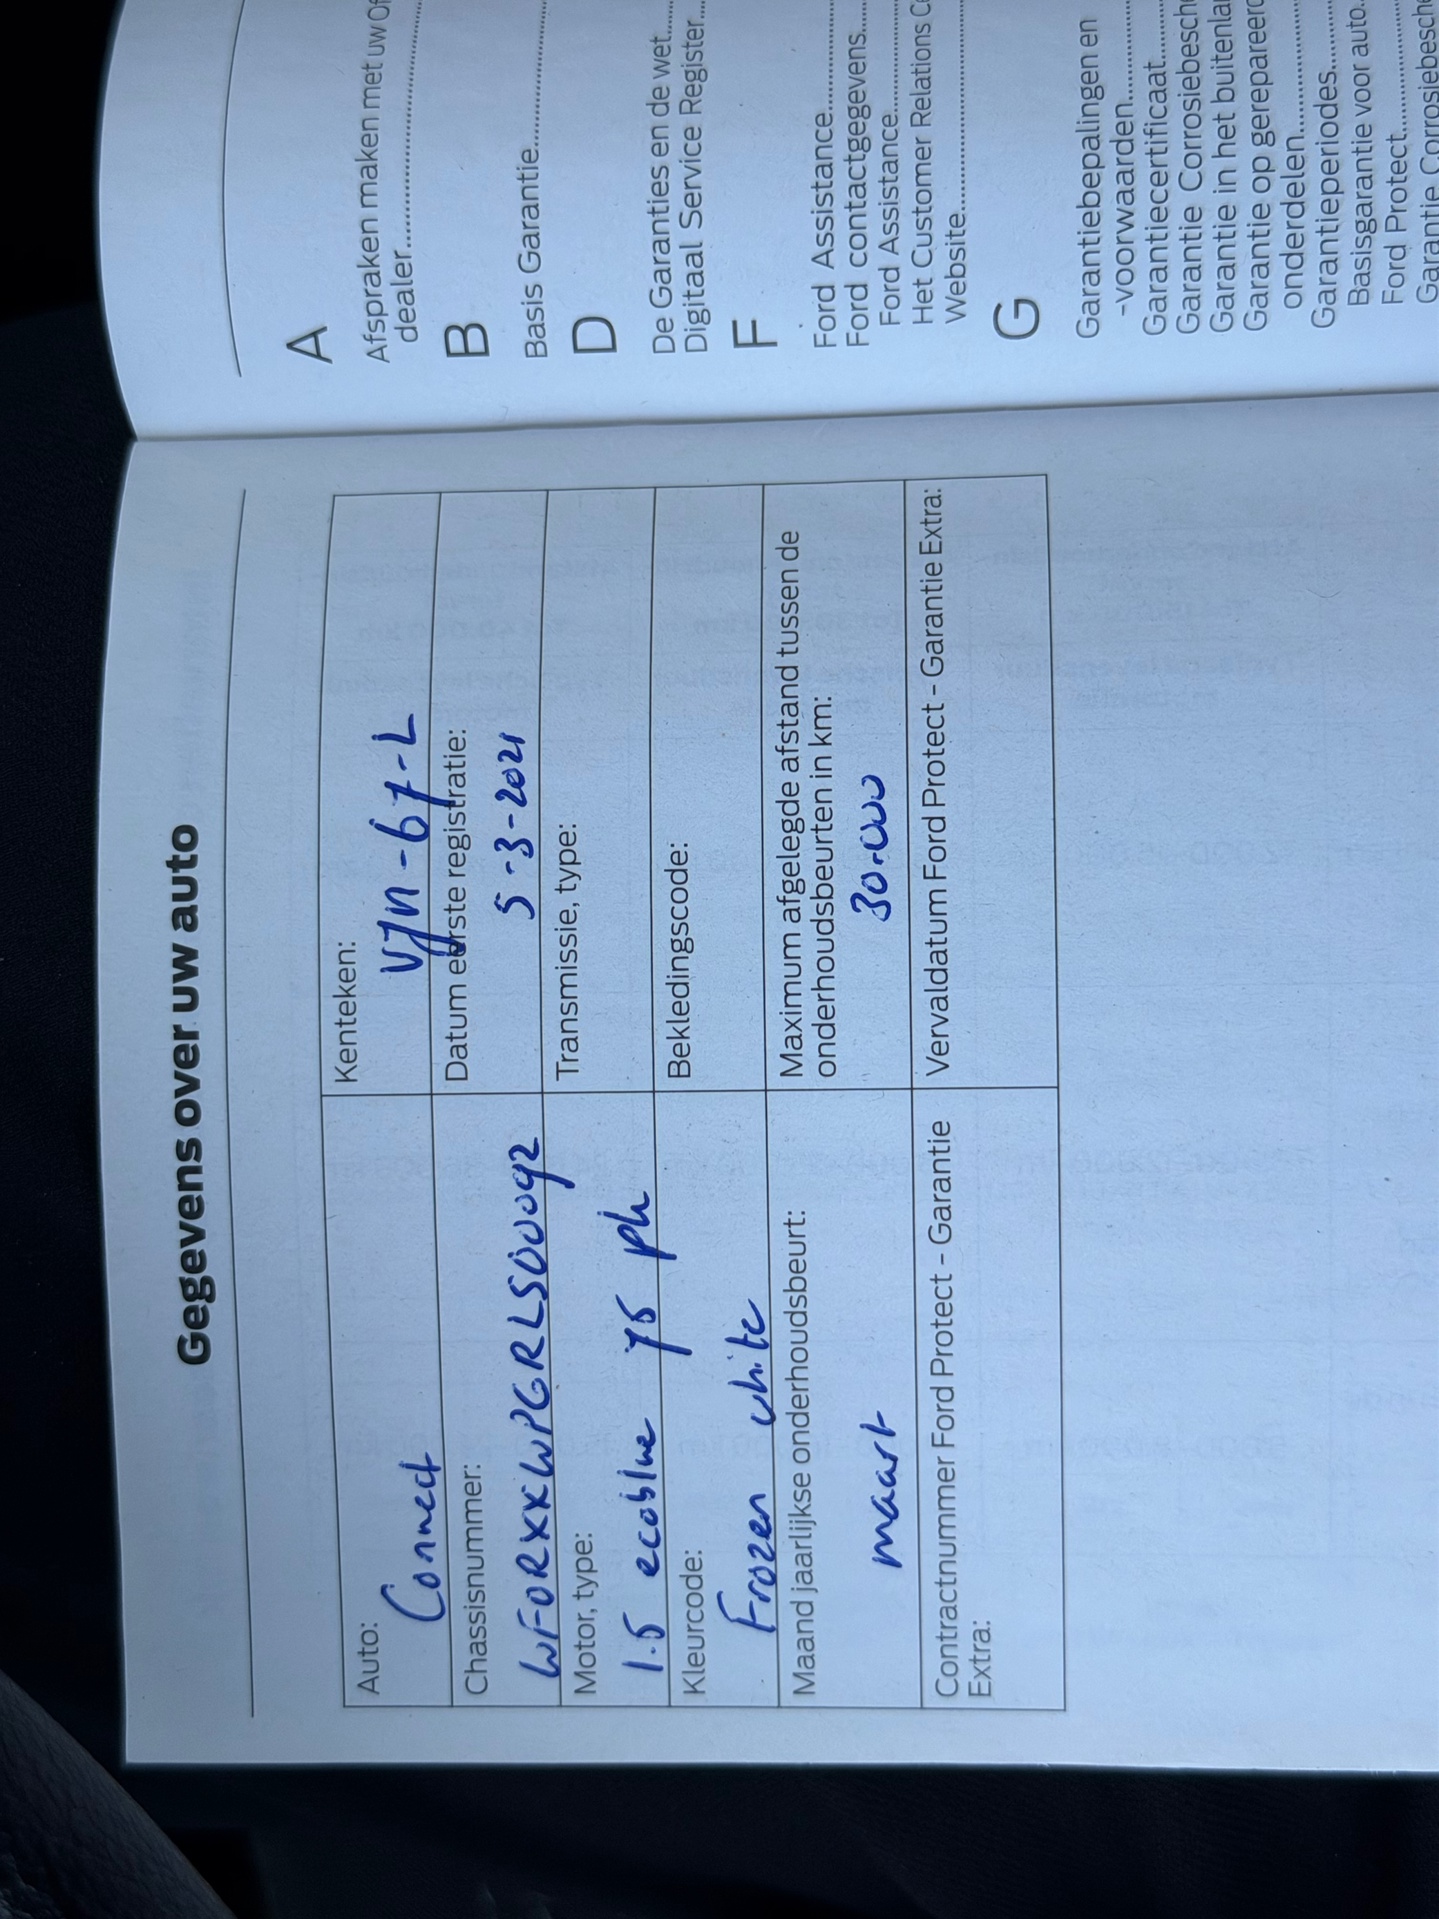 Gegevens over uw auto
Auto:
Connect
Kenteken:
VJN-67-L
Chassisnummer:
WF0RXXWPGRLS00092
Datum eerste registratie:
5-3-2021
Motor, type:
1.5 ecoblue 75 pk
Transmissie, type:
Kleurcode:
Frozen white
Bekledingscode:
Maand jaarlijkse onderhoudsbeurt:
maart
Maximum afgelegde afstand tussen de
onderhoudsbeurten in km:
30.000
Contractnummer Ford Protect - Garantie
Extra:
Vervaldatum Ford Protect - Garantie Extra:
A
Afspraken maken met uw
dealer
B
Basis Garantie
D
De Garanties en de wet
Digitaal Service Register
F
Ford Assistance
Ford contactgegevens
Ford Assistance
Het Customer Relations
Website
G
Garantiebepalingen en
-voorwaarden
Garantiecertificaat
Garantie Corrosiebesche
Garantie in het buitenla
Garantie op gerepareerd
onderdelen
Garantieperiodes
Basisgarantie voor auto
Ford Protect
Garantie Corrosiebesche